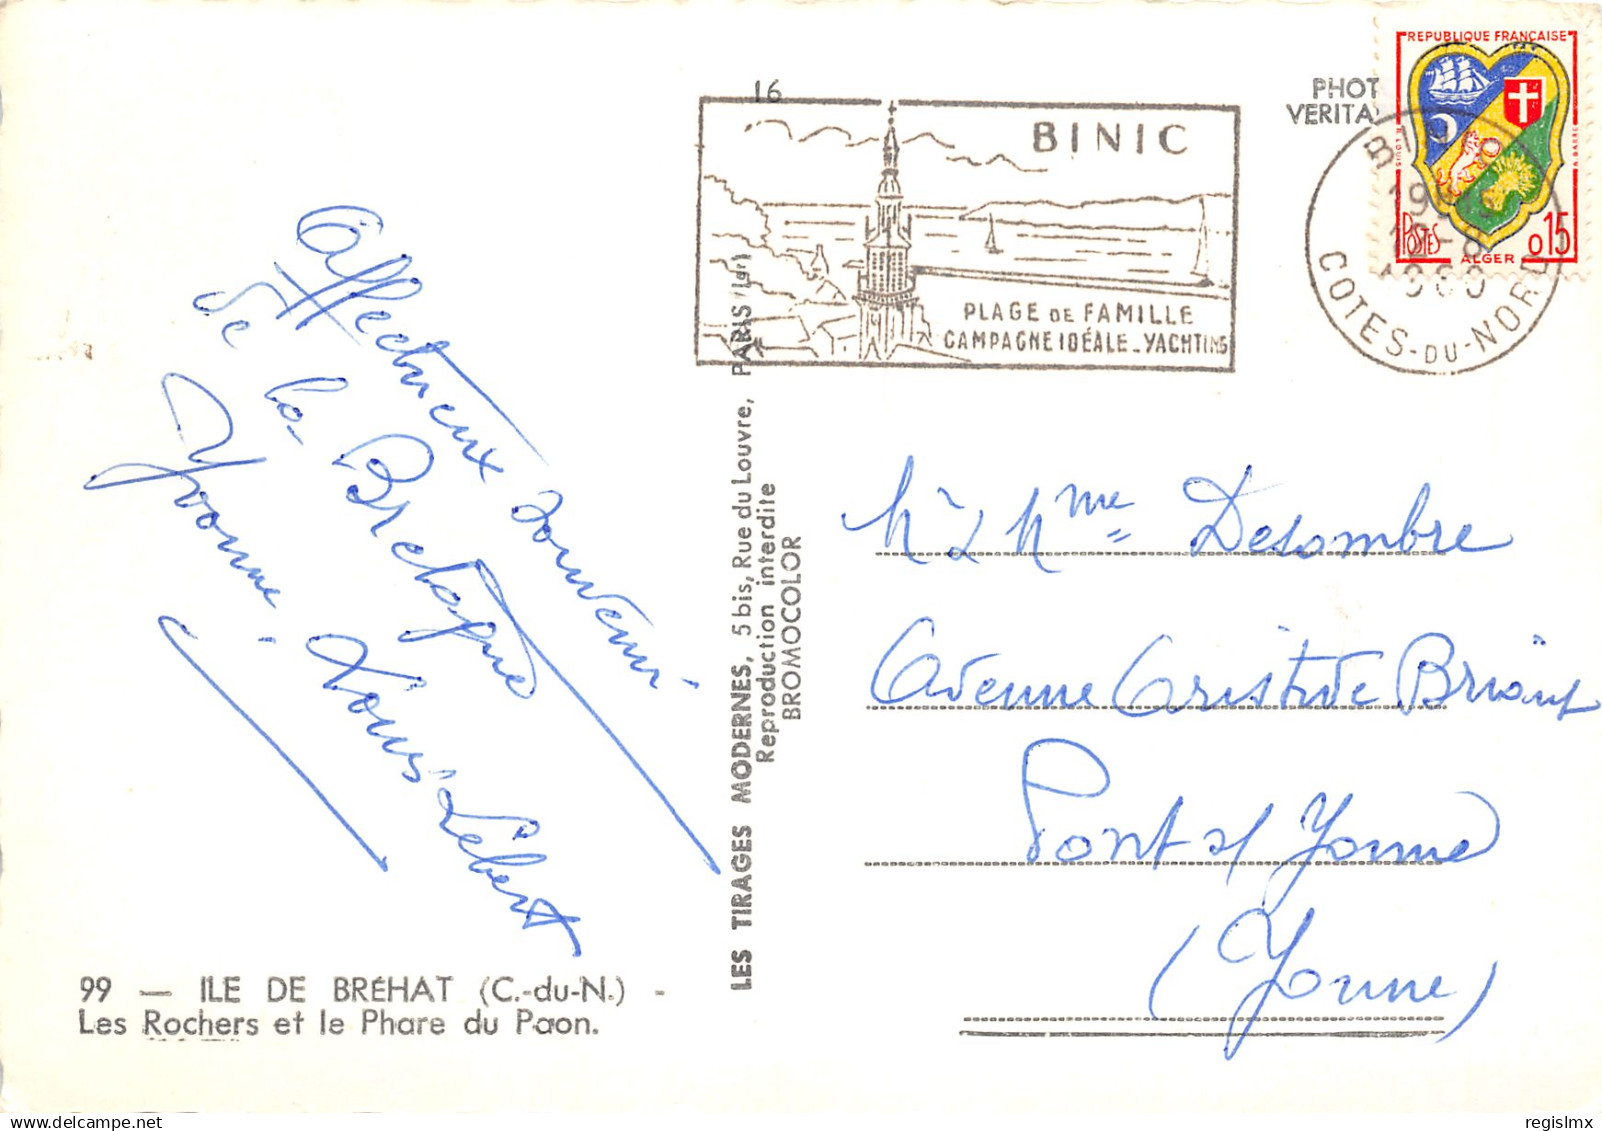 Affectueux souvenir
de la Bretagne
Yvonne, Louis Lebert
99 — ILE DE BRÉHAT (C.-du-N.) -
Les Rochers et le Phare du Paon.
LES TIRAGES MODERNES, 5 bis, Rue du Louvre, PARIS (1er)
Reproduction interdite
BROMOCOLOR
16
BINIC
PLAGE DE FAMILLE
CAMPAGNE IDÉALE_YACHTING
PHOT
VERITA
REPUBLIQUE FRANÇAISE
POSTES
ALGER
0,15
BINIC
12-8
1960
COTES-DU-NORD
Mr & Mme Desombre
Avenue Aristide Briand
Pont s/ Yonne
(Yonne)
regislmx